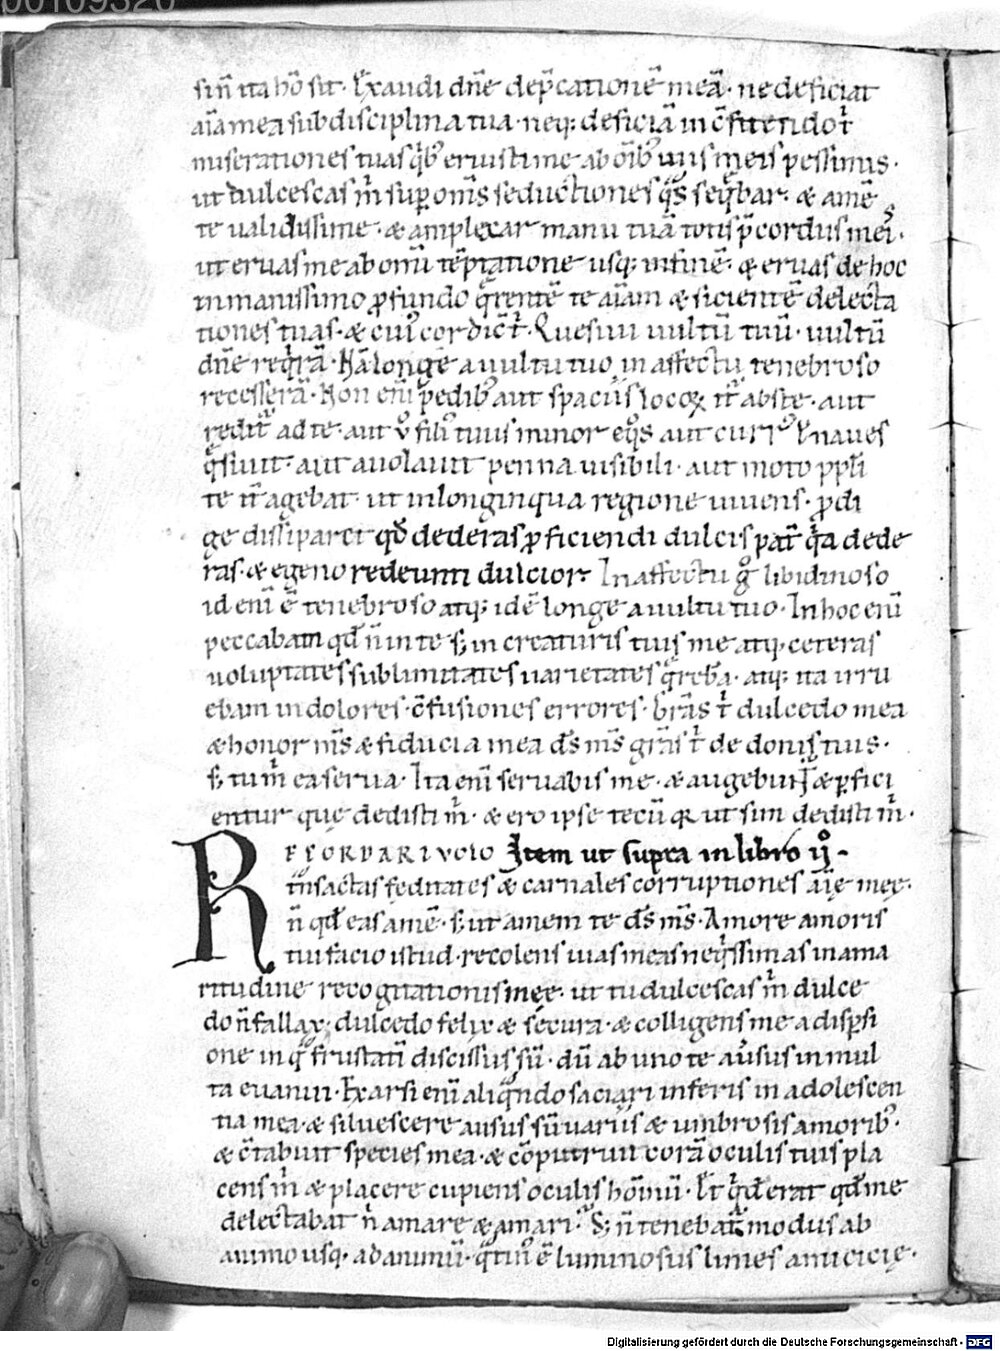 00109320
sin̄ ita hō sit. Exaudi dn̄e dep̄cationē meā. ne deficiat
aīa mea sub disciplina tua. neq; deficiā in c̄fitendo t̄
miserationes tuas q̄b; eruisti me ab oīb; uiis meis pessimis.
ut dulcescas m̄ sup om̄s seductiones q̄s seq̄bar. & amē
te ualidissime. & amplexar manu tuā totis p̄cordiis meis.
ut eruas me ab omī tēptatione usq; in finē. & eruas de hoc
inmanissimo ꝓfundo q̄rentē te aīam & sicientē delecta
tiones tuas. & cui' cor dic̄ t̄. Quesiui uultū tuū. uultū
dn̄e req̄rā. Nā longe a uultu tuo in affectu tenebroso
recesserā. Non enī pedib; aut spaciis locoꝝ it̄ abs te. aut
redit̄ ad te. aut v̊ fili' tuus minor eq̊s aut curr' ł naues
q̄siuit. aut auolauit penna uisibili. aut moto pplı̄
te it̄ agebat. ut in longinqua regione uiuens. ꝓdi
ge dissiparet qd̄ dederas ꝓficiendi dulcis pat̄ q̄a dede
ras. & egeno redeunti dulcior. In affectu g̊ libidinoso
id enī ē tenebroso atq; id ē longe a uultu tuo. In hoc enī
peccabam qd̄ n̄ in te s; in creaturis tuis me atq; ceteras
uoluptates sublimitates uarietates q̄rebā. atq; ita irru
ebam in dolores. c̄fusiones errores. Gr̄as t̄ dulcedo mea
& honor m̄s & fiducia mea ds̄ m̄s gr̄as t̄ de donis tuis.
s; tu m̄ ea serua. Ita enī seruabis me. & augebunt̄ & ꝑfici
entur que dedisti m̄. & ero ipse tecū qꝛ ut sim dedisti m̄.
RECORDARI VOLO Item ut supra in libro ij̊.
tn̄sactas feditates & carnales corruptiones aīe mee.
n̄ qd̄ eas amē. s; ut amem te ds̄ m̄s. Amore amoris
tui facio istud. recolens uias meas neq̄ssimas in ama
ritudine recogitationis mee. ut tu dulcescas m̄ dulce
do n̄ fallax; dulcedo felix & secura. & colligens me a disꝑsi
one in q̄ frustatī discissus sū. dū ab uno te au̇sus in mul
ta euanui. Exarsi enī aliq̄ndo saciari inferis in adolescen
tia mea. & siluescere ausus sū uariis & umbrosis amorib;.
& c̄tabuit species mea. & cōputrui corā oculis tuis pla
cens m̄ & placere cupiens oculis homīnū. Et q̄d erat qd̄ me
delectabat n̄ amare & amari. S; n̄ tenebat̄ modus ab
animo usq; ad animū. q̄tin' ē luminosus limes amicicie.
Digitalisierung gefördert durch die Deutsche Forschungsgemeinschaft - DFG